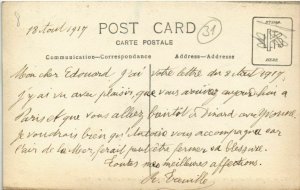 8
18 Aout 1917
POST CARD
31
CARTE POSTALE
Communication—Correspondance
Address—Adresse
STAMP
HERE
Mon cher Edouard, j'ai votre lettre du 8 Aout 1917.
J'y ai vu avec plaisir, que vous arriviez aujourd'hui a
Paris et que vous alliez bientôt à Dinard avec Yvonne.
Je voudrais bien qu' vous accompagne car
l'air de la Mer, ferait peut être fermer sa blessure.
Toutes nos meilleures affections.